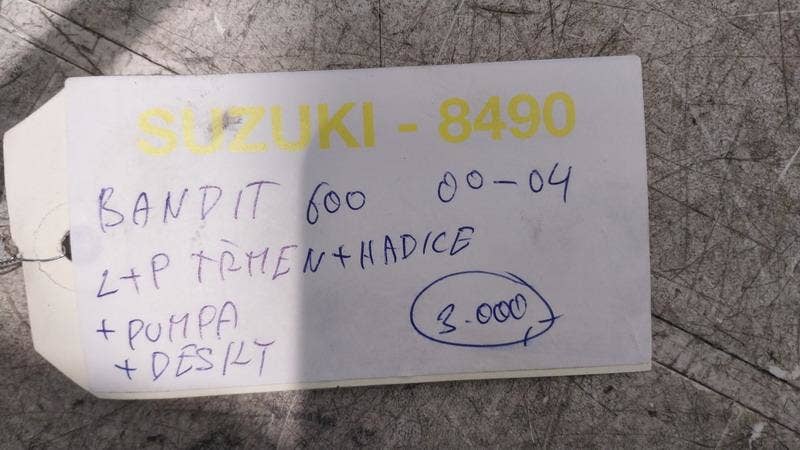 SUZUKI - 8490
BANDIT 600 00-04
L+P TŘMEN+HADICE
+PUMPA
3.000,-
+DESKT